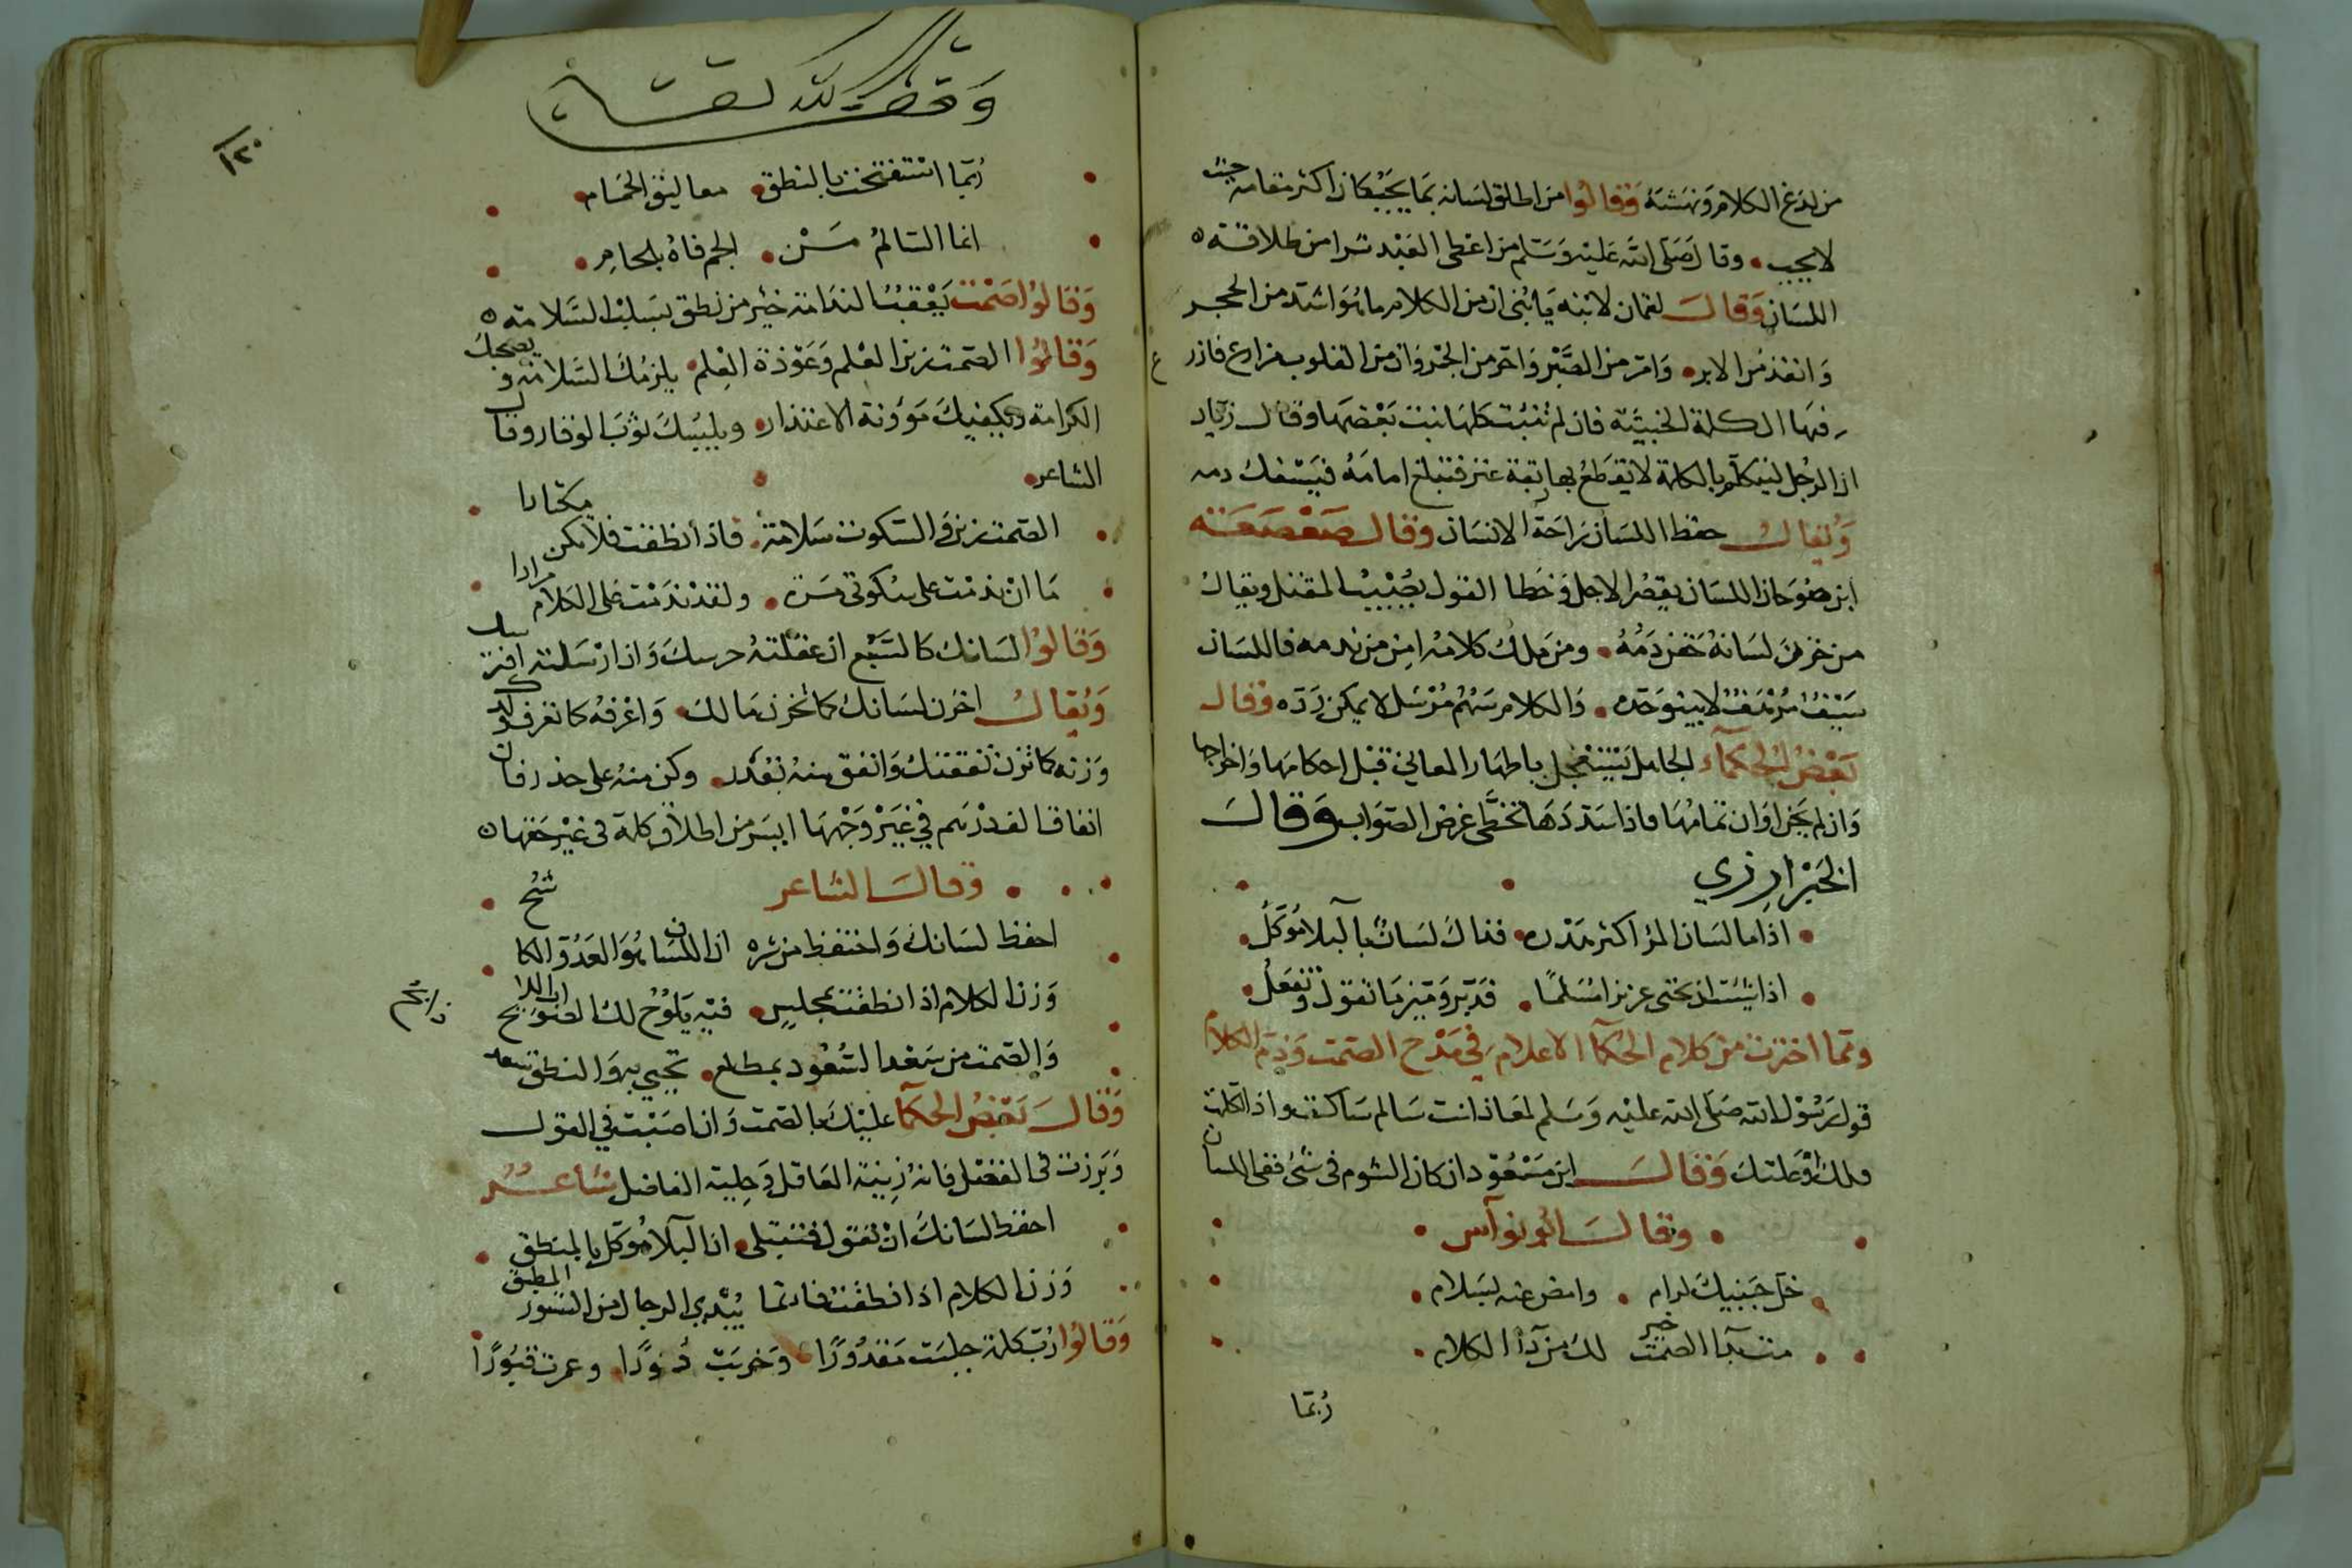 من لدغ الكلام ونهشه وقالوا من اطلق لسانه بما يحب كان اكثر مقامه حيث
لا يحب وقال صلى الله عليه وسلم من اعطى العبد شرا من طلاقة
اللسان وقال لقمان لابنه يا بنى ان من الكلام ما هو اشد من الحجر
وانفذ من الابر وامر من الصبر واحر من الجمر وان من القلوب مزارع فازرع
فيها الكلمة الخبيثة فان لم تنبت كلها نبت بعضها وقال زياد
ان الرجل ليتكلم بالكلمة لا يقطع بها عنز فتبلغ امامه فيسفك دمه
ويقال حفظ اللسان راحة الانسان وقال صعصعة
ابن صوحان اللسان يقصر الاجل وخطا القول يصيب المقتل ويقال
من خزن لسانه حقن دمه ومن ملك كلامه امن من ندمه فاللسان
سيف مرهف لا ينبو حده والكلام سهم مرسل لا يمكن رده وقال
بعض الحكماء الجاهل يستعجل باظهار المعاني قبل احكامها واخراجها
وان لم يحن اوان تمامها فاذا سددها تخطى غرض الصواب وقال
الخبزارزي
اذا ما لسان المرء اكثر هذره فذاك لسان بالبلاء موكل
اذا شئت ان تحيى عزيزا مسلما فدبر وميز ما تقول وتفعل
ومما اخترت من كلام الحكما الاعلام في مدح الصمت وذم الكلام
قول رسول الله صلى الله عليه وسلم لمعاذ انت سالم ساكت واذا تكلمت
فلك او عليك وقال ابن مسعود ان كان الشوم فى شئ ففى اللسان
وقال ابو نوآس
خل جنبيك لرام وامض عنه بسلام
مت بدآ الصمت خير لك من دآ الكلام
ربما
وقف لله تعالى
١٢٠
ربما استفتحت بالنطق مغاليق الحمام
انما السالم من الجم فاه بلجام
وقالوا صمت يعقب الندامة خير من نطق يسلب السلامه
وقالوا الصمت زين العلم وعوذة العلم يلزمك السلامه ويصحبك
الكرامة ويكفيك مؤونة الاعتذار ويلبسك ثوب الوقار وقال
الشاعر
الصمت زين والسكوت سلامة فاذا نطقت فلا تكن مكثارا
ما ان ندمت على سكوتى مرة ولقد ندمت على الكلام مرارا
وقالوا لسانك كالسبع ان عقلته حرسك وان ارسلته افترسك
ويقال اخزن لسانك كما تخزن مالك واعرفه كما تعرف ولدك
وزنه كما تزن نفقتك وانفق منه بقدر وكن منه على حذر فان
انفاق الف درهم في غير وجهها ايسر من اطلاق كلمة فى غير حقها
وقال الشاعر
احفظ لسانك واحتفظ من شره ان اللسان هو العدو الكاشح
وزن الكلام اذا نطقت بمجلس فبه يلوح لك الصواب اللايح
والصمت من سعد السعود بمطلع تحيى به والنطق سعد
ذابح
وقال بعض الحكمآ عليك بالصمت وان اصبت في القول
وبرزت فى الفضل فانه زينة العاقل وحلية الفاضل شاعر
احفظ لسانك ان تقول فتبتلى ان البلآ موكل بالمنطق
وزن الكلام اذا نطقت فانما يبدى الرجال من السور المنطق
وقالوا رب كلمة جلبت مقدورا وخربت دورا وعمرت قبورا